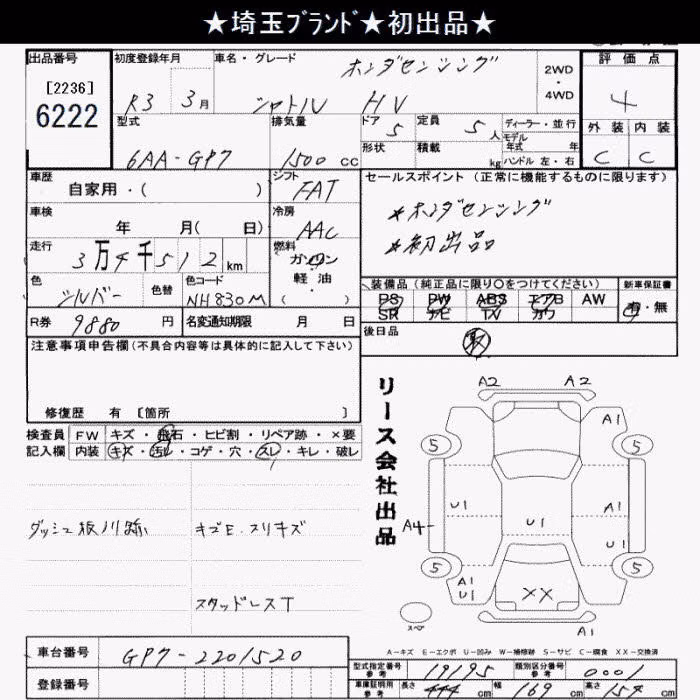 ★埼玉ﾌﾞﾗﾝﾄﾞ★初出品★
出品番号
[2236]
6222
初度登録年月
R3 3月
車名・グレード
ホンダセンシング
シャトル HV
2WD
・
4WD
評価点
4
外装 内装
C C
型式
6AA-GP7
排気量
1500 cc
ドア 5
形状
定員 5人
積載 kg
ディーラー・並行
モデル
年式 年
ハンドル 左・右
車歴
自家用・( )
シフト
FAT
車検
年 月( 日)
冷房
AAC
走行
3万4千512km
燃料
ガソリン
軽油・
( )
色
シルバー
色替
色コード
NH830M
R券 9880円
名変通知期限 月 日
セールスポイント (正常に機能するものに限ります)
*ホンダセンシング
*初出品
装備品 (純正品に限り○をつけてください)
PS PW ABS エアB AW
SR ナビ TV カワ
新車保証書
有・無
後日品
取
注意事項申告欄(不具合内容等は具体的に記入して下さい)
修復歴 有 [箇所 ]
検査員
記入欄
FW キズ・飛石・ヒビ割・リペア跡・×要
内装 キズ・汚レ・コゲ・穴・スレ・キレ・破レ
ダッシュ板ハリ跡
キズE.スリキズ
スタッドレスT
リース会社出品
A2 A2
A1
5 5
U1 A1
A4 U1 U1
5 5
A1
U1
XX
A1
スペア
A-キズ E-エクボ U-凹み W-補修跡 S-サビ C-腐食 XX-交換済
車台番号 GP7-2201520
登録番号
型式指定番号
参考
19195
類別区分番号
参考
0001
車庫証明用
参考
長さ 444cm 幅 169cm 高さ 157cm